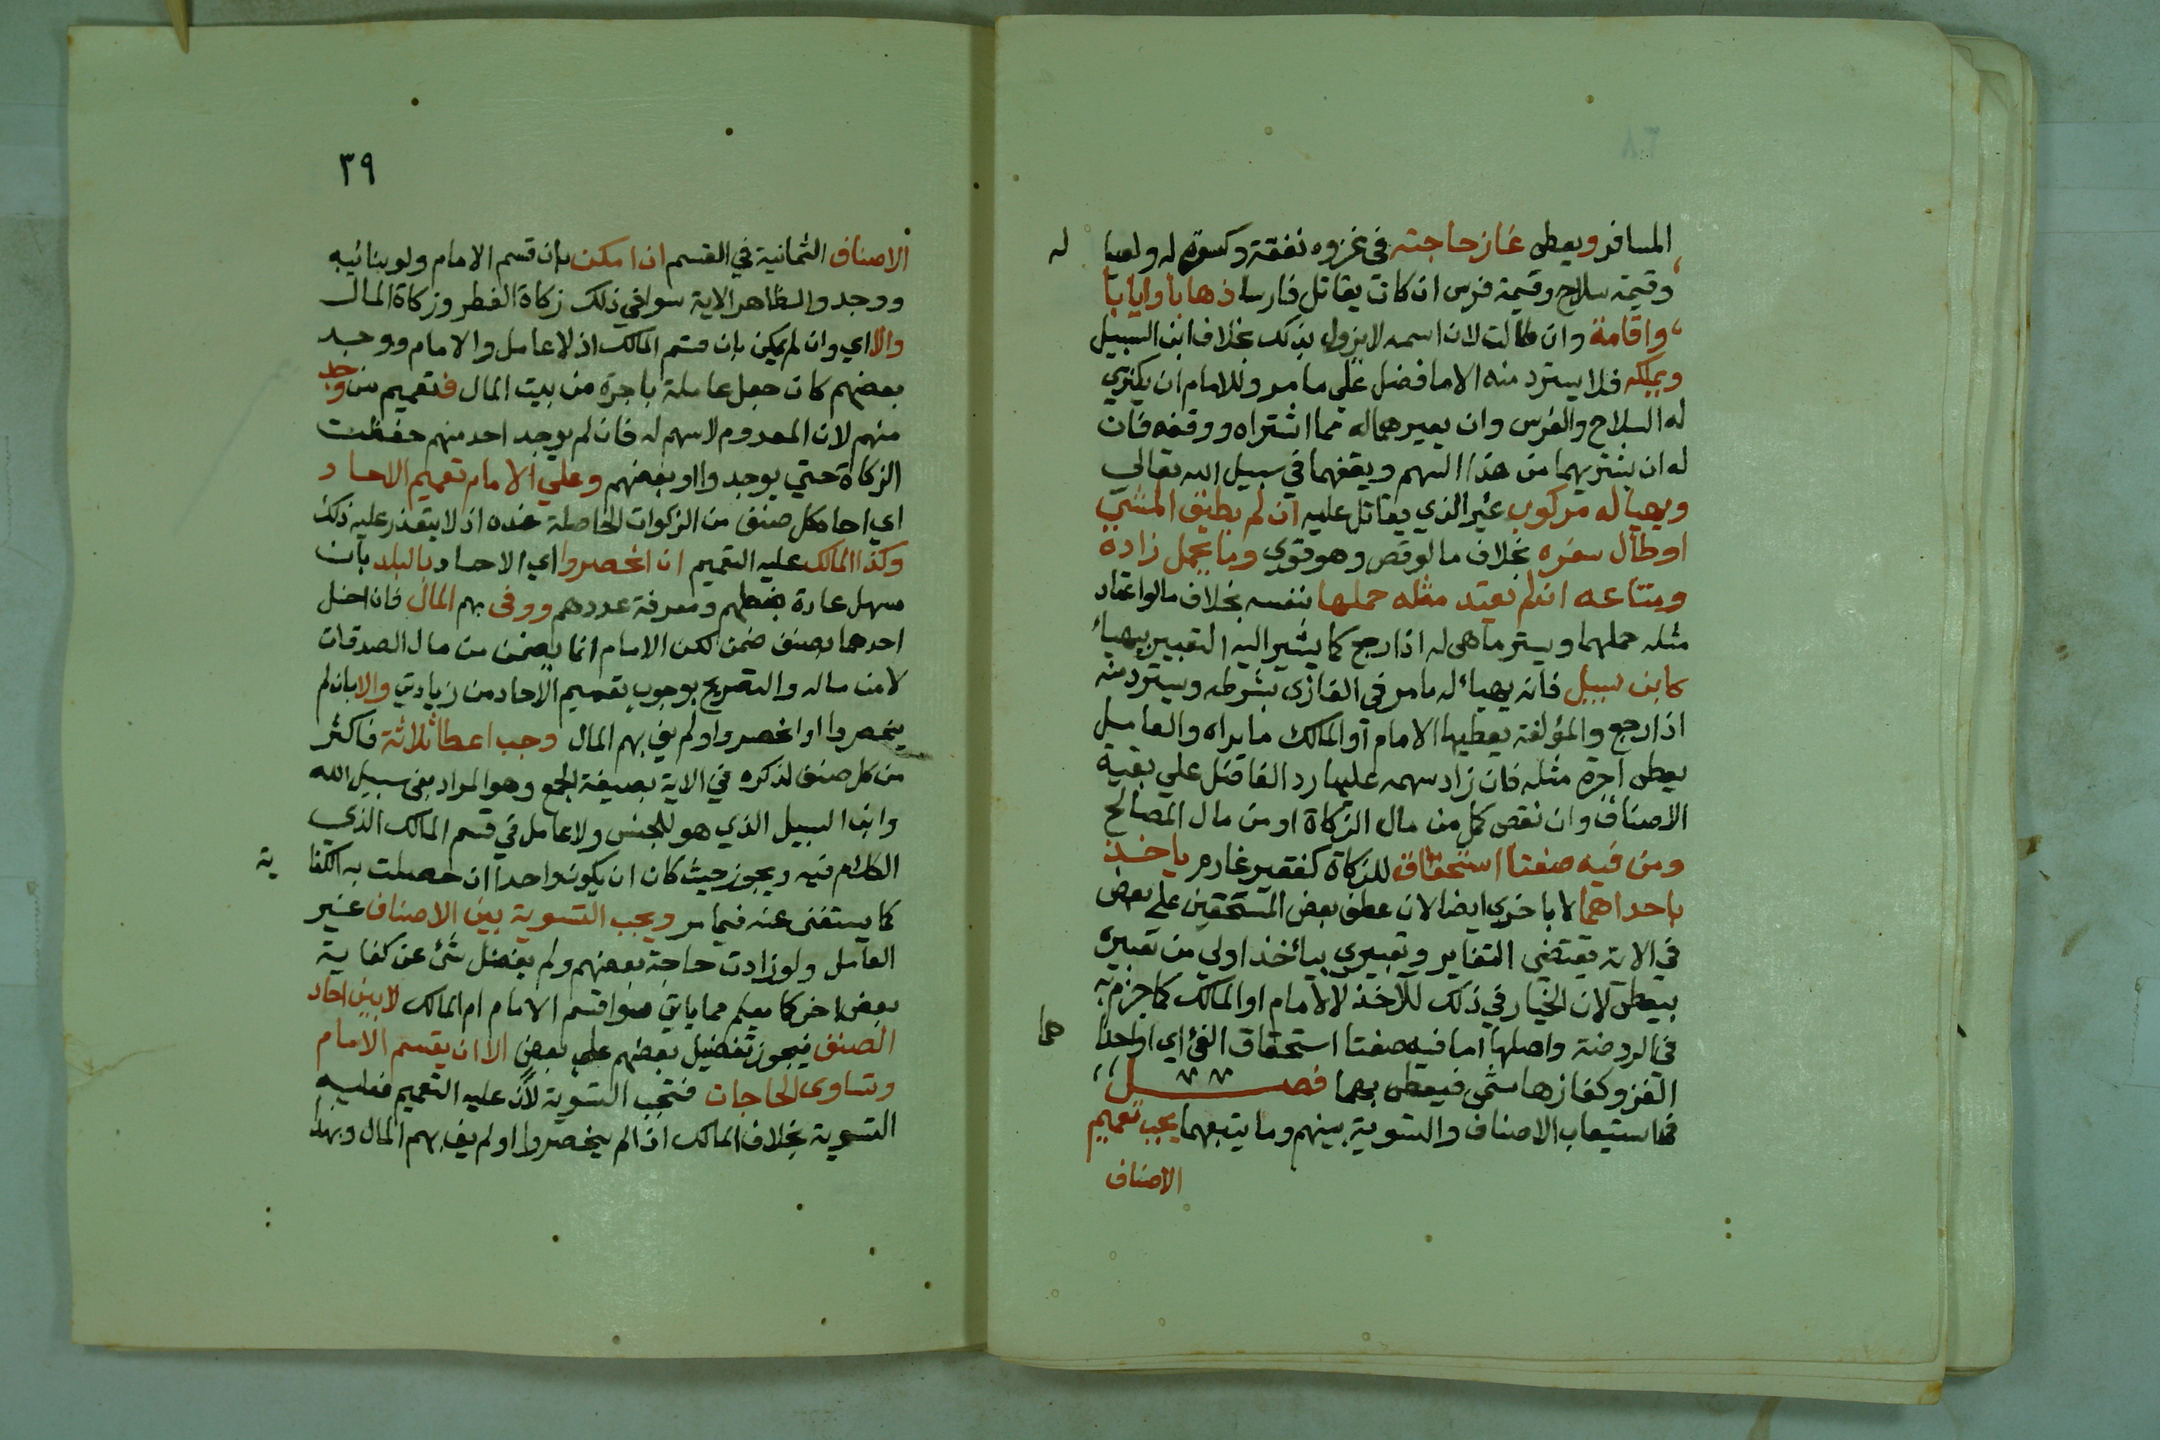 المسافر ويعطى غاز حاجته في غزوه نفقة وكسوة له ولعيا له
وقيمة سلاح وقيمة فرس ان كان يقاتل فارسا ذهابا وايابا
واقامة وان طالت لان اسمه لا يزول بذلك بخلاف ابن السبيل
ويملكه فلا يسترد منه الا ما فضل على ما مر وللامام ان يكتري
له السلاح والفرس وان يعيرهما له مما اشتراه ووقفه فان
له ان يشتريهما من هذا السهم ويقفهما في سبيل الله تعالي
ويهيا له مركوب غير الذي يقاتل عليه ان لم يطيق المشي
او طال سفره بخلاف ما لو قصر وهو قوي وما يحمل زاده
ومتاعه ان لم يعتد مثله حملها بنفسه بخلاف ما لو اعتاد
مثله حملهما ويسترد ما هى له اذا رجع كما يشير اليه التعبير بيهيأ
كابن سبيل فانه يهيأ له ما مر في الغازى بشرطه ويسترد منه
اذا رجع والمؤلفة يعطيها الامام او المالك ما يراه والعامل
يعطى اجرة مثله فان زاد سهمه عليها رد الفاضل علي بقية
الاصناف وان نقص كمل من مال الزكاة او من مال المصالح
ومن فيه صفتا استحقاق للزكاة كفقير غارم ياخذ
باحداهما لا باخرى ايضا لان عطف بعض المستحقين على بعض
في الاية يقتضي التغاير وتعبيري بيأخذ اولي من تعبيره
بيعطى لان الخيار في ذلك للآخذ لا للامام او المالك كما جزم به
في الروضة واصلها اما من فيه صفتا استحقاق الفئ اي احدا هما
الغزو كغاز هاشمى فيعطى بهما فصل
في استيعاب الاصناف والتسوية بينهم وما يتبعهما يجب تعميم
الاصناف
٣٩
الاصناف الثمانية في القسم ان امكن بان قسم الامام ولو بنائبه
ووجدوا لظاهر الاية سوا في ذلك زكاة الفطر وزكاة المال
والا اي وان لم يمكن بان قسم المالك اذ لا عامل والامام ووجد
بعضهم كان جعل عاملا باجرة من بيت المال فتعميم من وجد
منهم لان المعدوم لا سهم له فان لم يوجد احد منهم حفظت
الزكاة حتي يوجدوا او بعضهم وعلي الامام تعميم الاحاد
اي احاد كل صنف من الزكوات الحاصلة عنده اذ لا يتعذر عليه ذلك
وكذا المالك عليه التعميم ان انحصروا اي الاحاد بالبلد بان
سهل عادة ضبطهم ومعرفة عددهم ووفى بهم المال فان اخل
احدهما بصنف ضمن لكن الامام انما يضمن من مال الصدقات
لا من ماله والتصريح بوجوب تعميم الآحاد من زيادتي والا بان لم
ينحصروا او انحصروا ولم يف بهم المال وجب اعطا ثلاثة فاكثر
من كل صنف لذكره في الاية بصيغة الجمع وهو المراد بفى سبيل الله
وابن السبيل الذي هو للجنس ولا عامل في قسم المالك الذي
الكلام فيه ويجوز حيث كان ان يكون واحدا ان حصلت به الكفا ية
كما يستغنى عنه فيما مر ويجب التسوية بين الاصناف غير
العامل ولو زادت حاجة بعضهم ولم يفضل شئ عن كفاية
بعض اخر كما يعلم مما ياتي سوا قسم الامام ام المالك لا بين احاد
الصنف فيجوز تفضيل بعضهم على بعض الا ان يقسم الامام
وتتساوى الحاجات فتجب التسوية لان عليه التعميم فعليه
التسوية بخلاف المالك اذا لم ينحصروا او لم يف بهم المال وبهذا